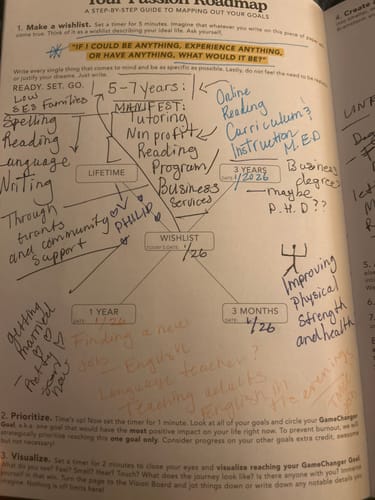 Your Passion Roadmap
A STEP-BY-STEP GUIDE TO MAPPING OUT YOUR GOALS
1. Make a wishlist. Set a timer for 5 minutes. Imagine that whatever you write on this piece of paper
come true. Think of it as a wishlist describing your ideal life. Ask yourself,
"IF I COULD BE ANYTHING, EXPERIENCE ANYTHING,
OR HAVE ANYTHING, WHAT WOULD IT BE?"
Write every single thing that comes to mind and be as specific as possible. Lastly, do not feel the need to be
or justify your dreams. Just write.
READY. SET. GO.
5-7 years:
Low
SES families
MANIFEST:
Tutoring
Nonprofit
Reading
Program/
Business
Services
Spelling
Reading
Language
Writing
Through
Grants
and community
Support
PHILIP
Online
Reading
Curriculum &
Instruction
M.ED
LIFETIME
3 YEARS
DATE: 1/2026
Business
degree
maybe
P.H.D??
WISHLIST
TODAY'S DATE: 1/26
Improving
Physical
Strength
and health
1 YEAR
DATE: 1/26
3 MONTHS
DATE: 1/26
getting
married
now
Finding a new
job - English
Language teacher?
Teaching adults
English in
the evenings
2. Prioritize. Time's up! Now set the timer for 1 minute. Look at all of your goals and circle your GameChanger
Goal, a.k.a. one goal that would have the most positive impact on your life right now. To prevent burnout, we will
strategically prioritize reaching this one goal only. Consider progress on your other goals extra credit, awesome
but not necessary!
3. Visualize. Set a timer for 2 minutes to close your eyes and visualize reaching your GameChanger Goal.
What do you see? Feel? Smell? Hear? Touch? What does the journey look like? Is there anyone with you? Immerse
yourself in that win. Turn the page to the Vision Board and jot things down or write down any notable details you
imagine. Nothing is off limits here!
4. Create